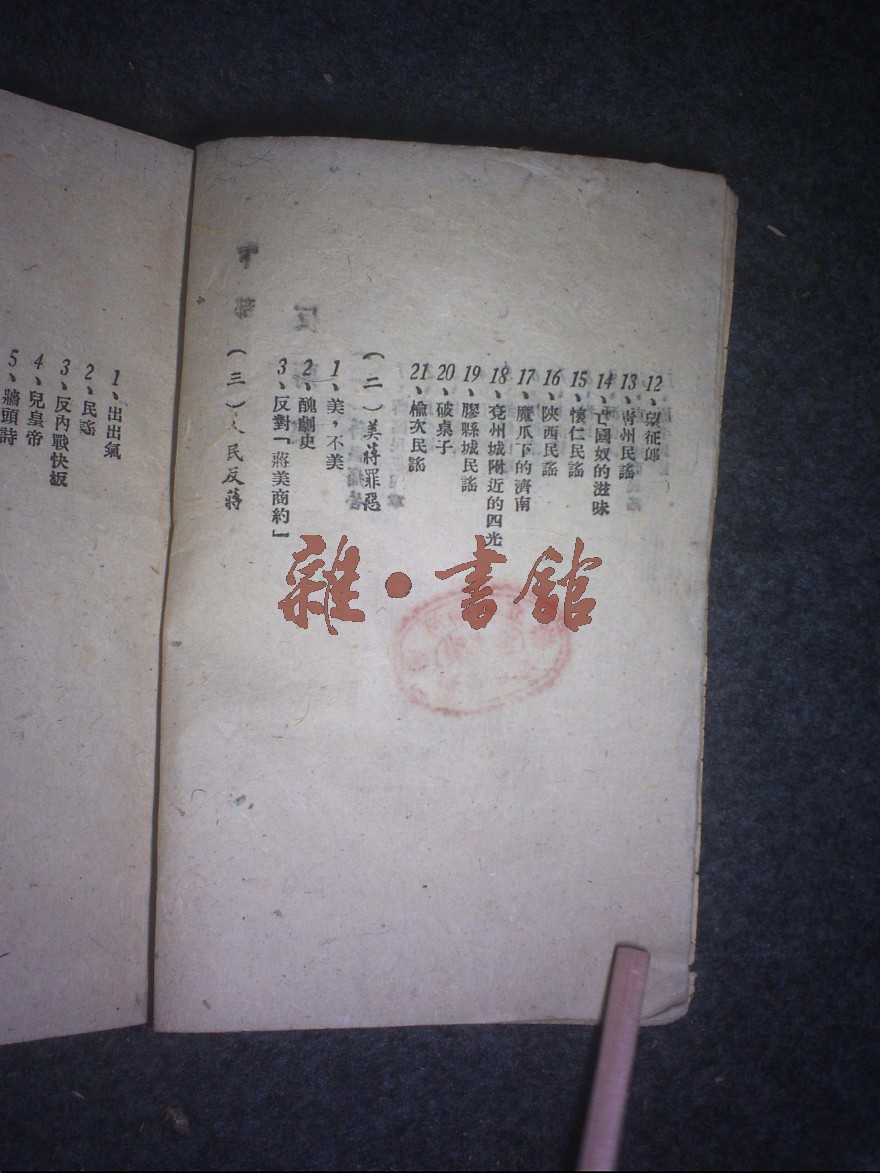 12、望征郎
13、靑州民謠
14、亡國奴的滋味
15、懷仁民謠
16、陝西民謠
17、魔爪下的濟南
18、兗州城附近的四光
19、膠縣城民謠
20、破桌子
21、榆次民謠
(二)美蔣罪惡
1、美,不美
2、醜劇史
3、反對「蔣美商約」
(三)人民反蔣
1、出出氣
2、民謠
3、反內戰快板
4、兒皇帝
5、牆頭詩
雜·書館